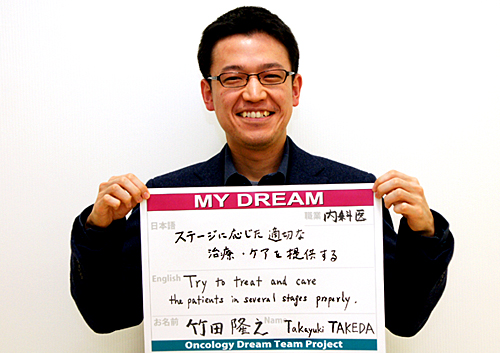 MY DREAM
職業 内科医
日本語
ステージに応じた適切な
治療・ケアを提供する
English Try to treat and care
the patients in several stages properly.
お名前 竹田隆之 Name Takayuki TAKEDA
Oncology Dream Team Project